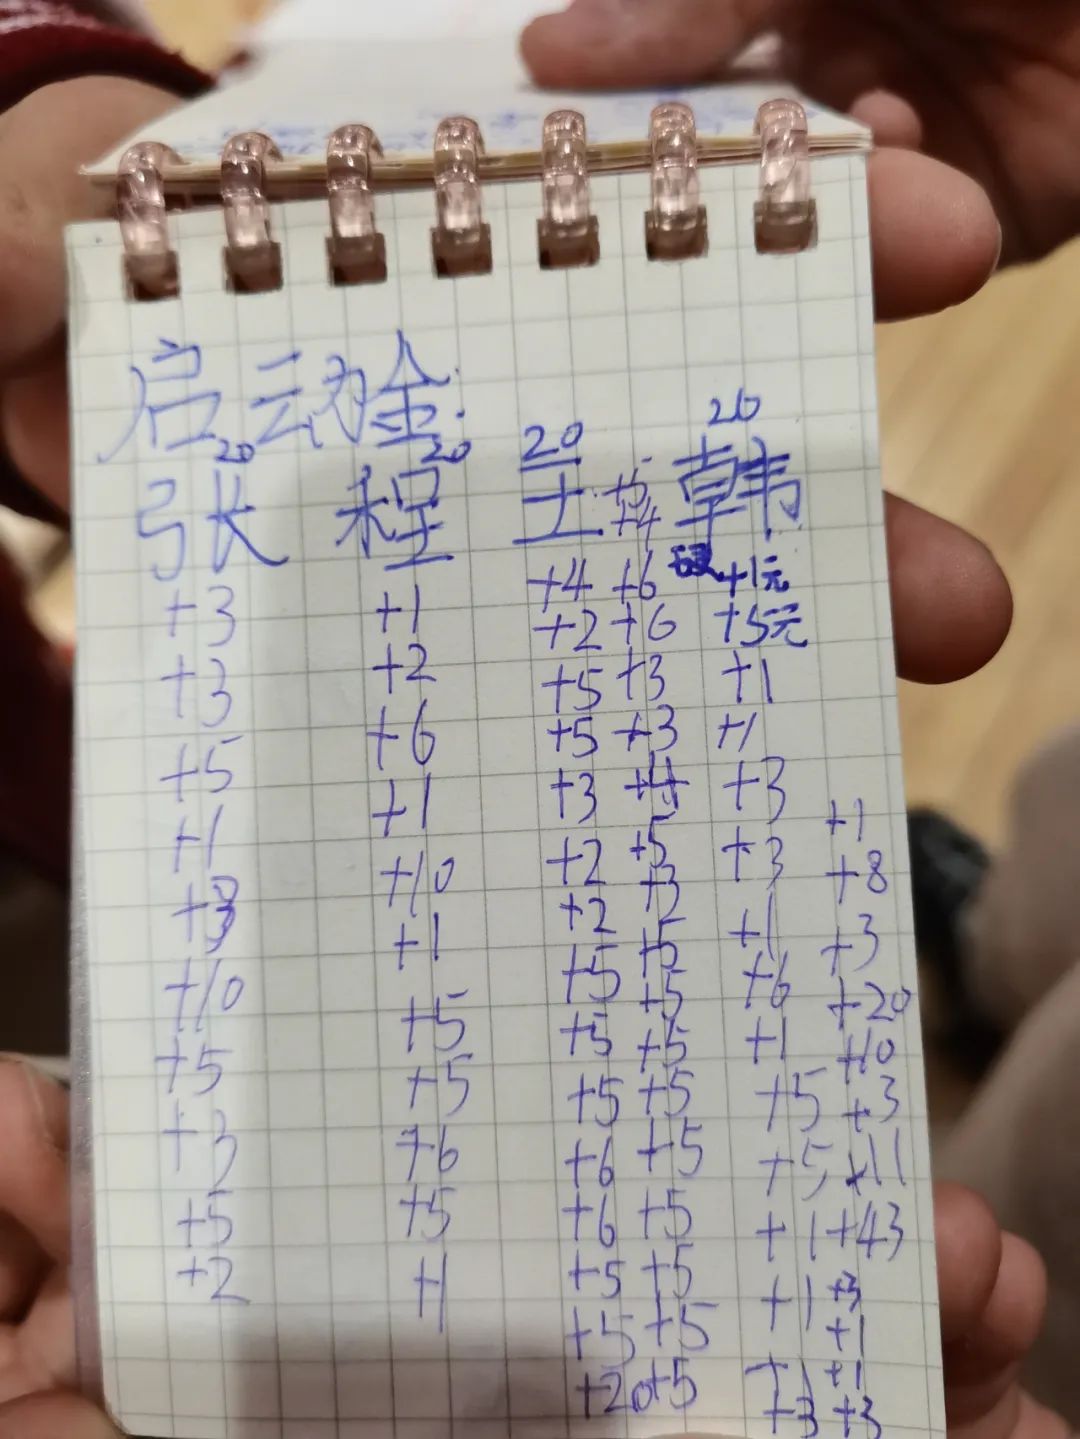 启动金:
20 20 20 20
张 程 王 +5 韩
+4
+3 +1 +4 +6 +1元
+3 +2 +2 +6 +5元
+5 +6 +5 +3 +1
+1 +1 +5 +3 +1
+3 +10 +3 +3
+10 +1 +2 +5 +3 +1
+5 +5 +2 +3 +1 +8
+3 +5 +5 +5 +6 +3
+5 +6 +5 +5 +1 +20
+2 +5 +5 +5 +5 +10
+1 +6 +5 +5 +3
+6 +5 +1 +11
+5 +5 +1 +43
+5 +5 +1 +3
+20 +5 +3 +1
+1
+3